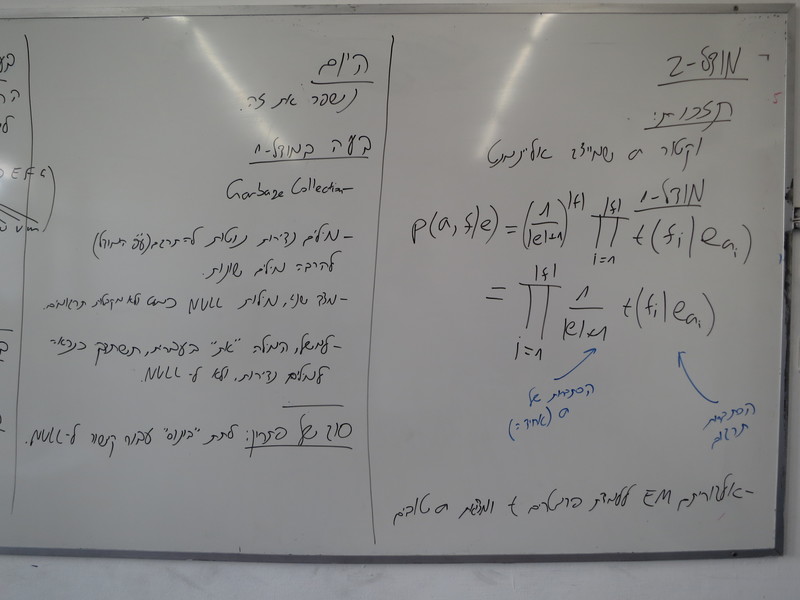 מודל-2
תזכורת:
וקטור a שמייצג אליינמנט
מודל-1
p(a,f|e) = (1/|e|+1)^|f| ∏_{i=1}^{|f|} t(f_i|e_{a_i})
= ∏_{i=1}^{|f|} 1/|e|+1 t(f_i|e_{a_i})
הסתברות של
a (אחיד=)
הסתברות
תרגום
-אלגוריתם EM ללמידת פרמטרים t ומציאת a טובים
היום
נשפר את זה.
בעיה במודל-1
Garbage Collection-
-מילים נדירות נוטות להתרגם (ע"פ המודל)
להרבה מילים שונות.
-מצד שני, מילות NULL כמעט ולא מקבלות תרגומים.
-למשל, המילה "את" בעברית, תשתדך כנראה
למילים נדירות, ולא ל-NULL.
סוג של פתרון: לתת "בונוס" עבור קישור ל-NULL.